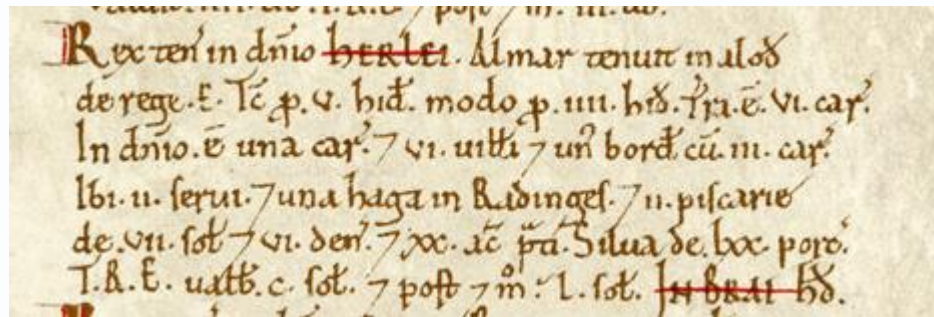 Rex teñ in dñio HERLEI. Almar tenuit in alod
de rege .E. Tc̄ p̱. v. hid̄. modo p̱. iiii. hid̄. Tr̄a .ē. vi. car̄.
In dñio .ē una car̄. ⁊ vi. uiłłi ⁊ un̄ bord̄ cū. iii. car̄.
Ibi. ii. serui. ⁊ una haga in Radinges. ⁊ ii. piscarie
de .vii. soł ⁊ vi. den̄. ⁊ xx. ac̄ p̄ti. Silua de. lxx. porc̄.
T.R.E. ualb̄. c. soł. ⁊ post ⁊ m̊. l. soł. IN BRAI HD̄.